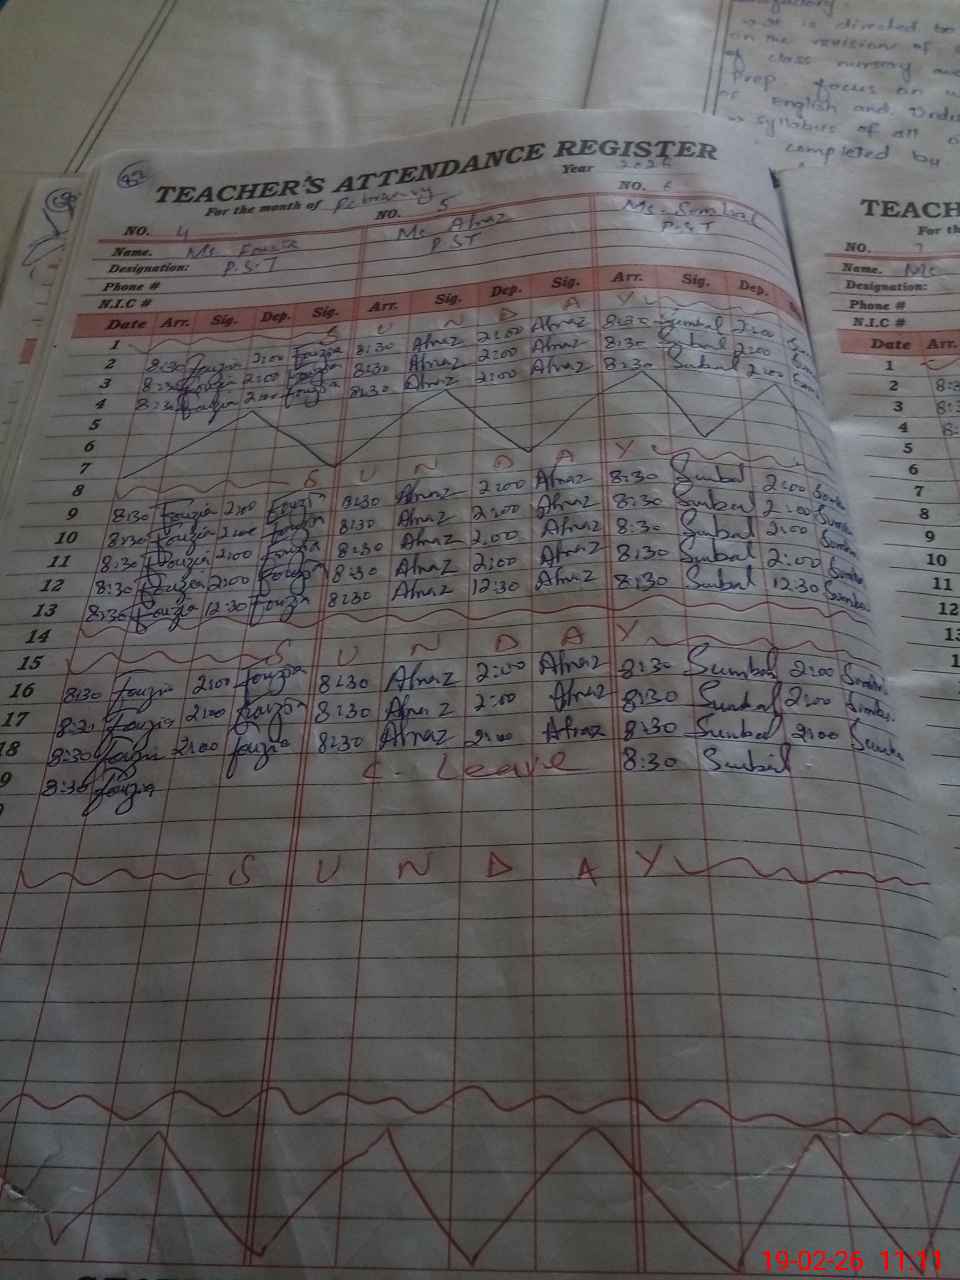 it is directed to
on the revision of
of class nursery and
Prep focus on
of English and Urdu
syllabus of all
completed by
92
TEACHER'S ATTENDANCE REGISTER
For the month of February Year 2026
NO. 4 NO. 5 NO. 6
Name. Ms. Fouzia Ms. Afnaz Ms. Sumbal
Designation: P.S.T P.S.T P.S.T
Phone #
N.I.C #
Date Arr. Sig. Dep. Sig. Arr. Sig. Dep. Sig. Arr. Sig. Dep.
1 S U N D A Y
2 8:30 Fouzia 2:00 Fouzia 8:30 Afnaz 2:00 Afnaz 8:30 Sumbal 2:00
3 8:30 Fouzia 2:00 Fouzia 8:30 Afnaz 2:00 Afnaz 8:30 Sumbal 2:00
4 8:30 Fouzia 2:00 Fouzia 8:30 Afnaz 2:00 Afnaz 8:30 Sumbal 2:00
5
6
7
8 S U N D A Y
9 8:30 Fouzia 2:00 Fouzia 8:30 Afnaz 2:00 Afnaz 8:30 Sumbal 2:00 Sumba
10 8:30 Fouzia 2:00 Fouzia 8:30 Afnaz 2:00 Afnaz 8:30 Sumbal 2:00 Sumba
11 8:30 Fouzia 2:00 Fouzia 8:30 Afnaz 2:00 Afnaz 8:30 Sumbal 2:00 Sumba
12 8:30 Fouzia 2:00 Fouzia 8:30 Afnaz 2:00 Afnaz 8:30 Sumbal 2:00 Sumba
13 8:30 Fouzia 12:30 Fouzia 8:30 Afnaz 12:30 Afnaz 8:30 Sumbal 12:30 Sumba
14
15 S U N D A Y
16 8:30 Fouzia 2:00 Fouzia 8:30 Afnaz 2:00 Afnaz 8:30 Sumbal 2:00 Sumba
17 8:30 Fouzia 2:00 Fouzia 8:30 Afnaz 2:00 Afnaz 8:30 Sumbal 2:00 Sumba
18 8:30 Fouzia 2:00 Fouzia 8:30 Afnaz 2:00 Afnaz 8:30 Sumbal 2:00 Sumba
9 8:30 Fouzia C. Leave 8:30 Sumbal
S U N D A Y
TEACH
For th
NO. 7
Name. Ms
Designation:
Phone #
N.I.C #
Date Arr.
1
2 8:3
3 8:3
4 8:
5
6
7
8
9
10
11
12
13
1
19-02-26 11:11